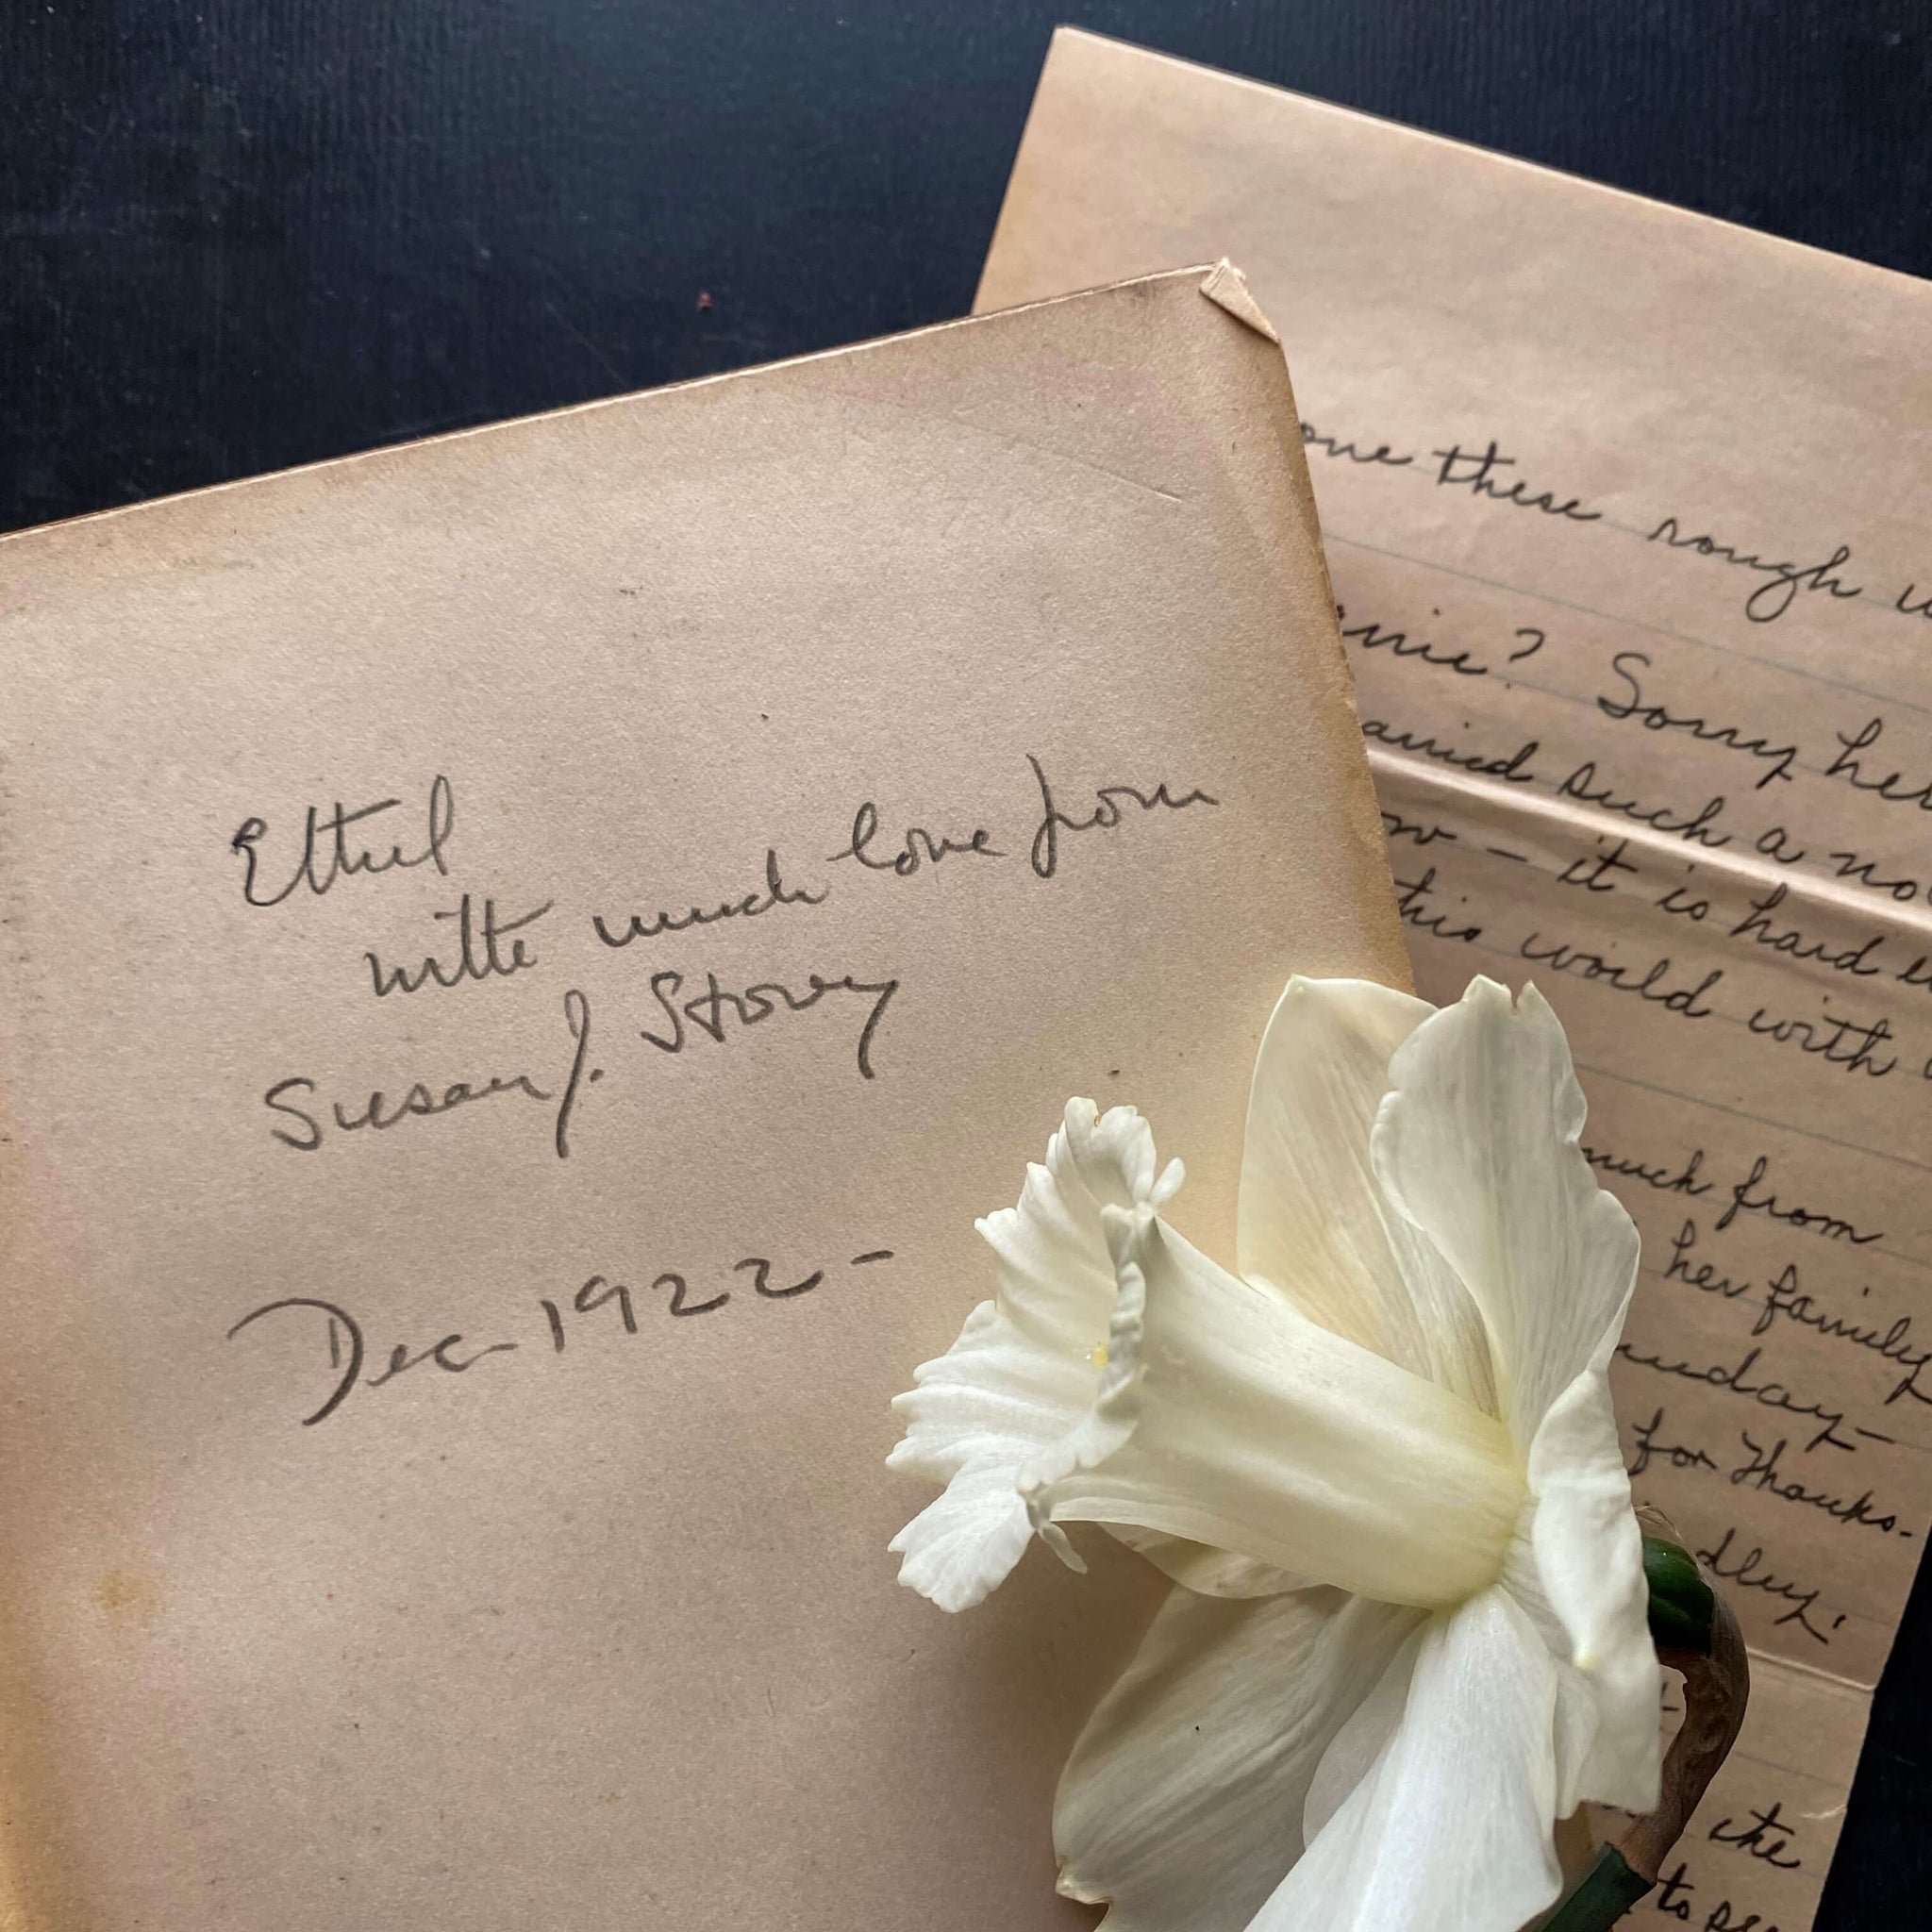 Ethel
with much love from
Susan J. Storey
Dec 1922 -
these rough
? Sorry
such a
- it is hard
this world with
much from
her family
for Thanks-
the
to